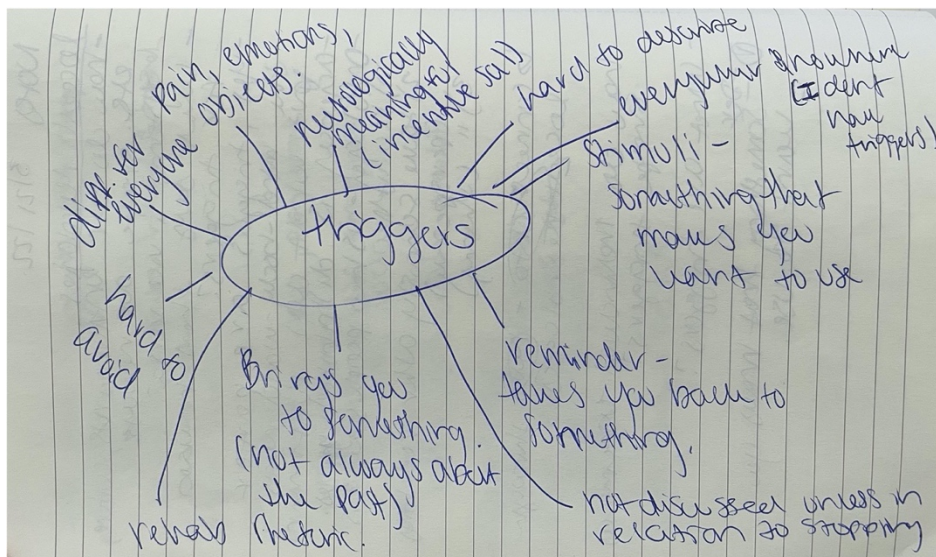 triggers
diff. for
everyone
pain, emotions,
objects.
neurologically
meaningful
(incentive sal)
hard to describe
everywhere & nowhere
(I dont
have
triggers!
stimuli -
something that
makes you
want to use
reminder -
takes you back to
something.
not discussed unless in
relation to stopping
Brings you
to something.
(not always about
the past)
rehab rhetoric.
hard to
avoid